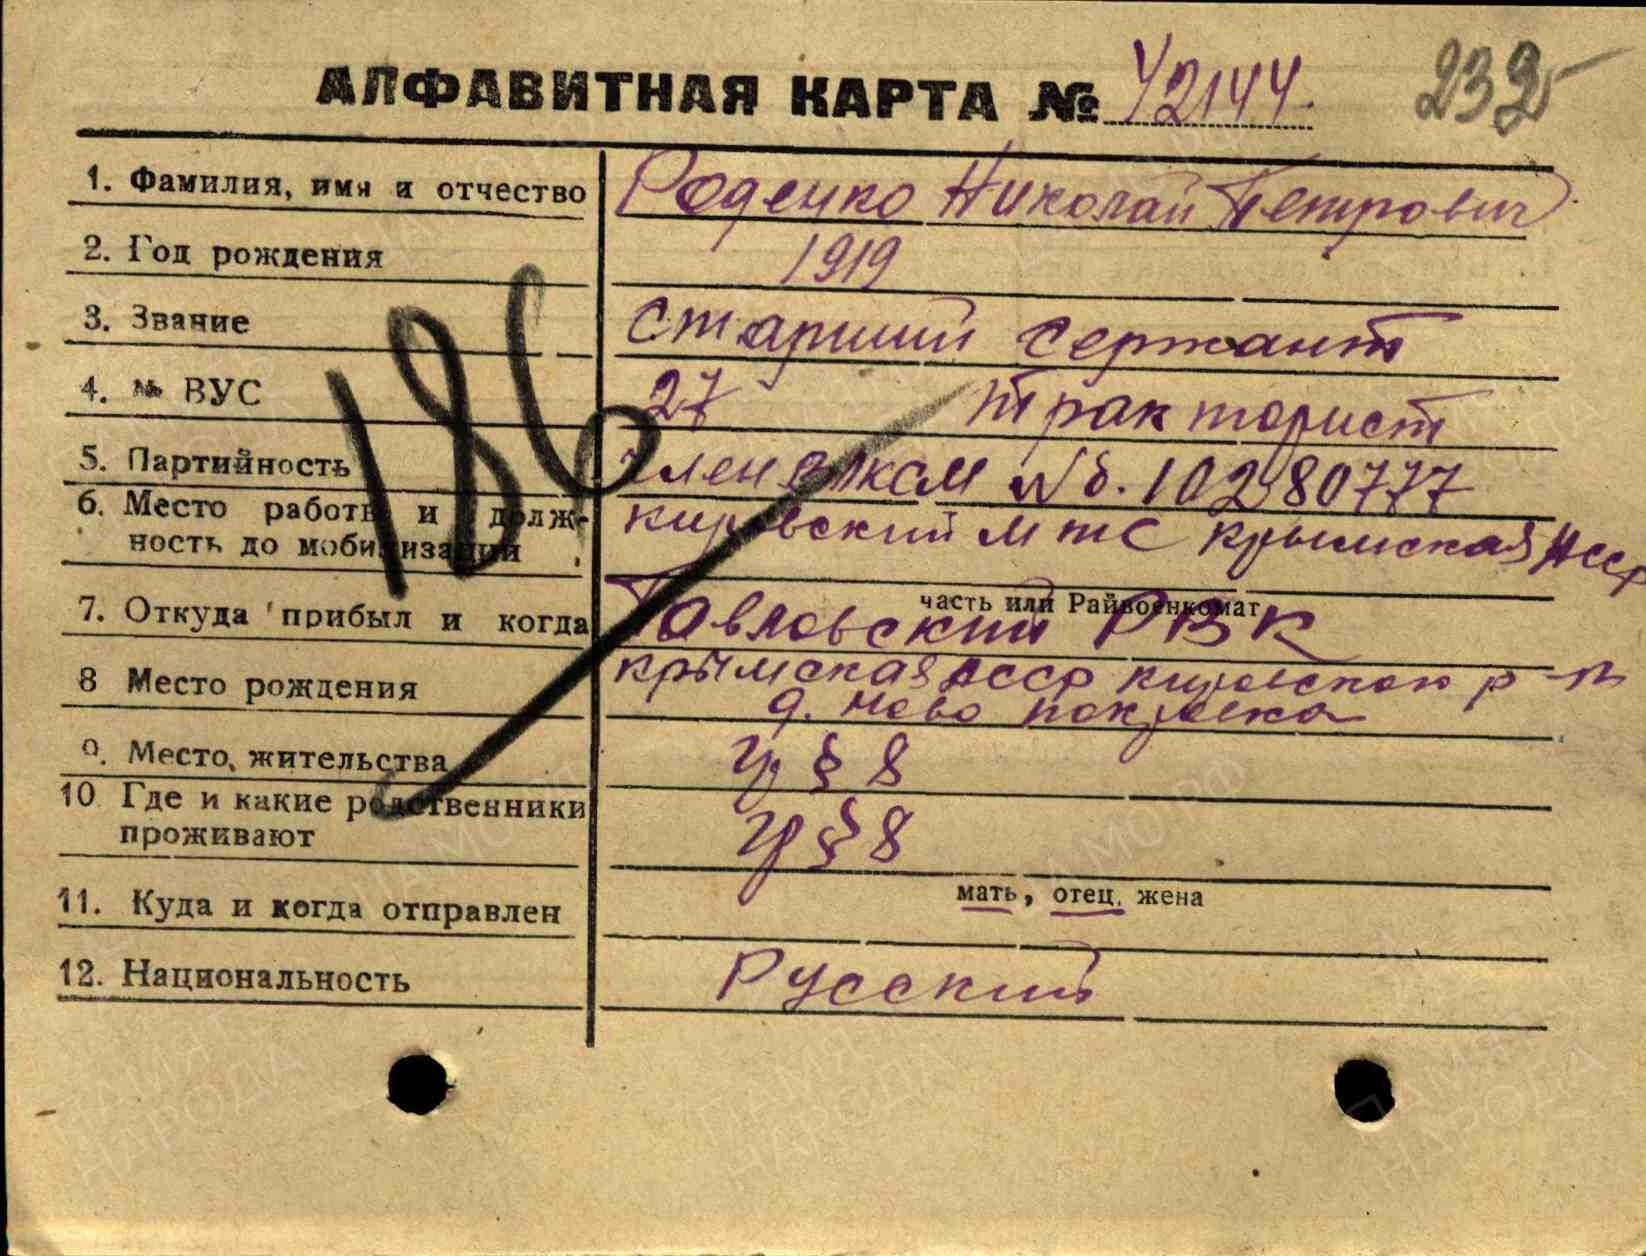 АЛФАВИТНАЯ КАРТА № 42144. 232
1. Фамилия, имя и отчество Роденко Николай Петрович
2. Год рождения 1919
3. Звание старший сержант
4. № ВУС 27 тракторист
5. Партийность член влксм №б. 10280777
6. Место работы и долж-
ность до мобилизации кировский мтс крымская Асср
186
часть или Райвоенкомат
7. Откуда прибыл и когда Павловский РВК
8 Место рождения крымская АССР кировского р-н
д. Ново покровка
9. Место жительства гр § 8
10 Где и какие родственники
проживают гр § 8
мать, отец, жена
11. Куда и когда отправлен
12. Национальность Русский
ПАМЯТЬ
НАРОДА